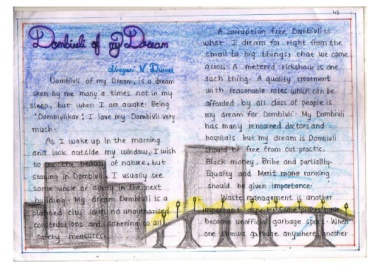 Dombivli of my Dream
Dombivli of my Dream, is a dream
seen by me many a times, not in my
sleep, but when I am awake. Being
'Dombivlikar', I love my Dombivli very
much.
As I wake up in the morning
and look outside my window, I wish
to see the beauty of nature, but
staying in Dombivli I usually see
some minor or in the next
building. My dream Dombivli is a
planned city with no unauthorised
constructions and adhering to all
safety measures.
A corruption free Dombivli is
what I dream for right from the
small to big things that we come
across. A metered rickshaw is one
such thing. A quality treatment
with reasonable rates which can be
afforded by all class of people is
my dream for Dombivli. My Dombivli
has many renowned doctors and
hospitals but my dream is Dombivli
should be free from cut practice,
Black money, Bribe and partiality.
Equality and Merit ranking
should be given importance.
Waste management is another
become unofficial garbage spot. When
one throws garbage anywhere another